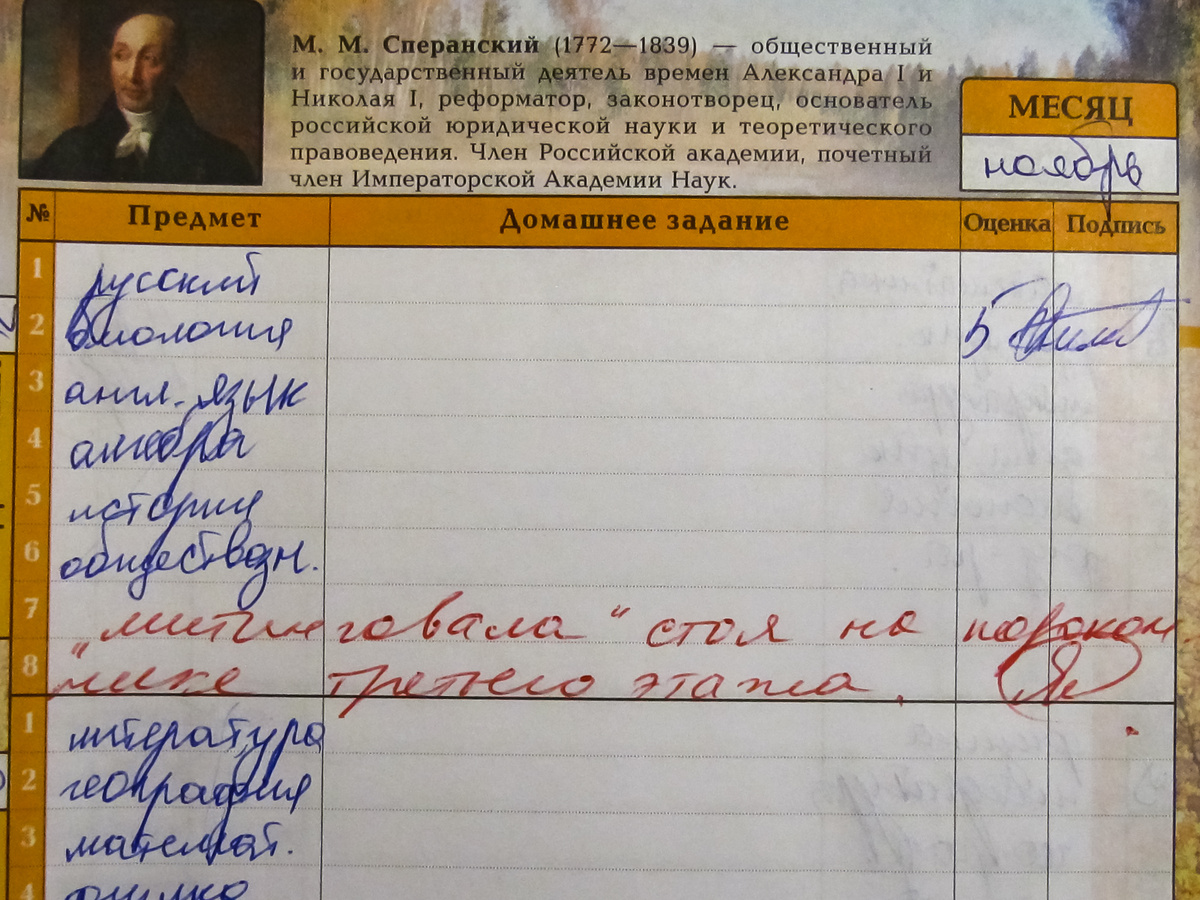 М. М. Сперанский (1772—1839) — общественный
и государственный деятель времен Александра I и
Николая I, реформатор, законотворец, основатель
российской юридической науки и теоретического
правоведения. Член Российской академии, почетный
член Императорской Академии Наук.
МЕСЯЦ
ноябрь
№ Предмет Домашнее задание Оценка Подпись
1 русский
2 биология 5
3 англ. язык
4 алгебра
5 история
6 обществозн.
7 „митинговала“ стоя на
8 третьего этажа.
1 литература
2 география
3 математ.
4 физика